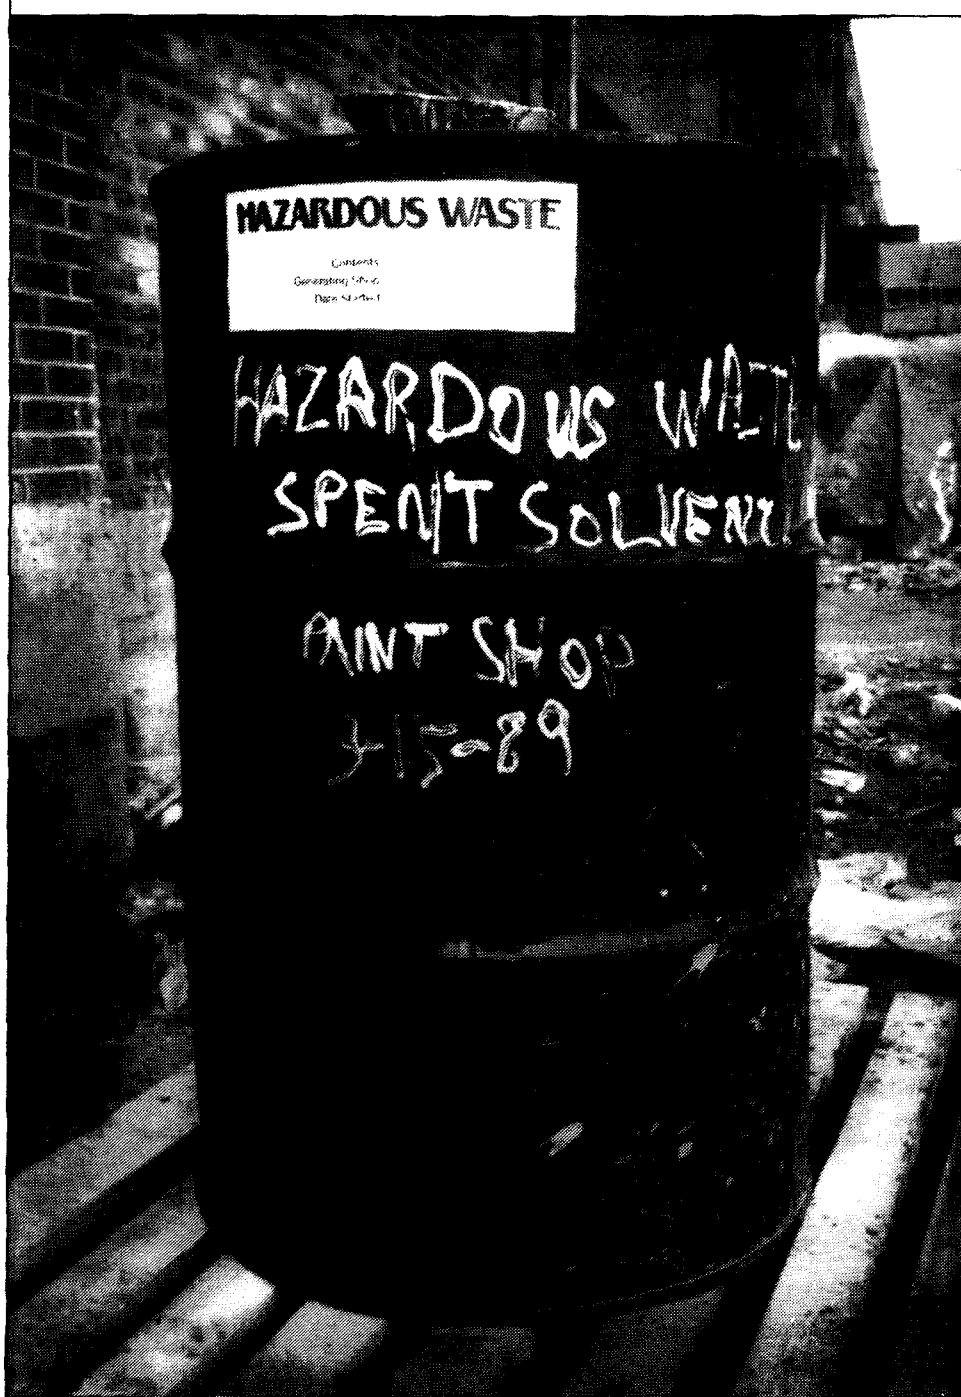 HAZARDOUS WASTE
Contents
Generating Shop
Date Started
HAZARDOUS WASTE
SPENT SOLVENT
PAINT SHOP
3-15-89